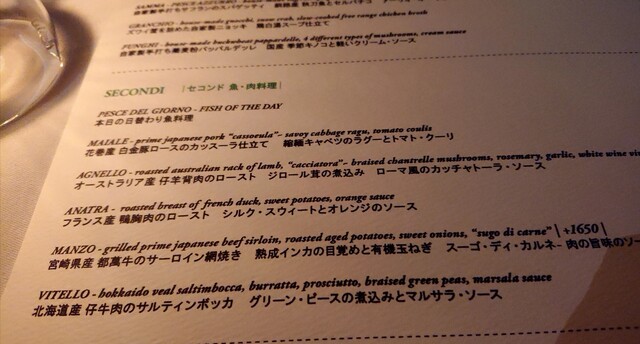 SAMMA - PESCE AZZURRO -
GRANCHIO - house-made gnocchi, snow crab, slow-cooked free range chicken broth
ズワイ蟹を詰めた自家製ニョッキ 鶏白湯スープ仕立て
FUNGHI - house-made buckwheat pappardelle, 4 different types of mushrooms, cream sauce
自家製手打ち蕎麦粉パッパルデッレ 国産 季節キノコと軽いクリーム・ソース
SECONDI |セコンド 魚・肉料理|
PESCE DEL GIORNO - FISH OF THE DAY
本日の日替わり魚料理
MAIALE - prime japanese pork “cassoeula”- savoy cabbage ragu, tomato coulis
花巻産 白金豚ロースのカッスーラ仕立て 縮緬キャベツのラグーとトマト・クーリ
AGNELLO - roasted australian rack of lamb, “cacciatora”- braised chantrelle mushrooms, rosemary, garlic, white wine vin
オーストラリア産 仔羊背肉のロースト ジロール茸の煮込み ローマ風のカッチャトーラ・ソース
ANATRA - roasted breast of french duck, sweet potatoes, orange sauce
フランス産 鴨胸肉のロースト シルク・スウィートとオレンジのソース
MANZO - grilled prime japanese beef sirloin, roasted aged potatoes, sweet onions, “sugo di carne” | +1650 |
宮崎県産 都萬牛のサーロイン網焼き 熟成インカの目覚めと有機玉ねぎ スーゴ・ディ・カルネ- 肉の旨味のソー
VITELLO - hokkaido veal saltimbocca, burratta, prosciutto, braised green peas, marsala sauce
北海道産 仔牛肉のサルティンボッカ グリーン・ピースの煮込みとマルサラ・ソース